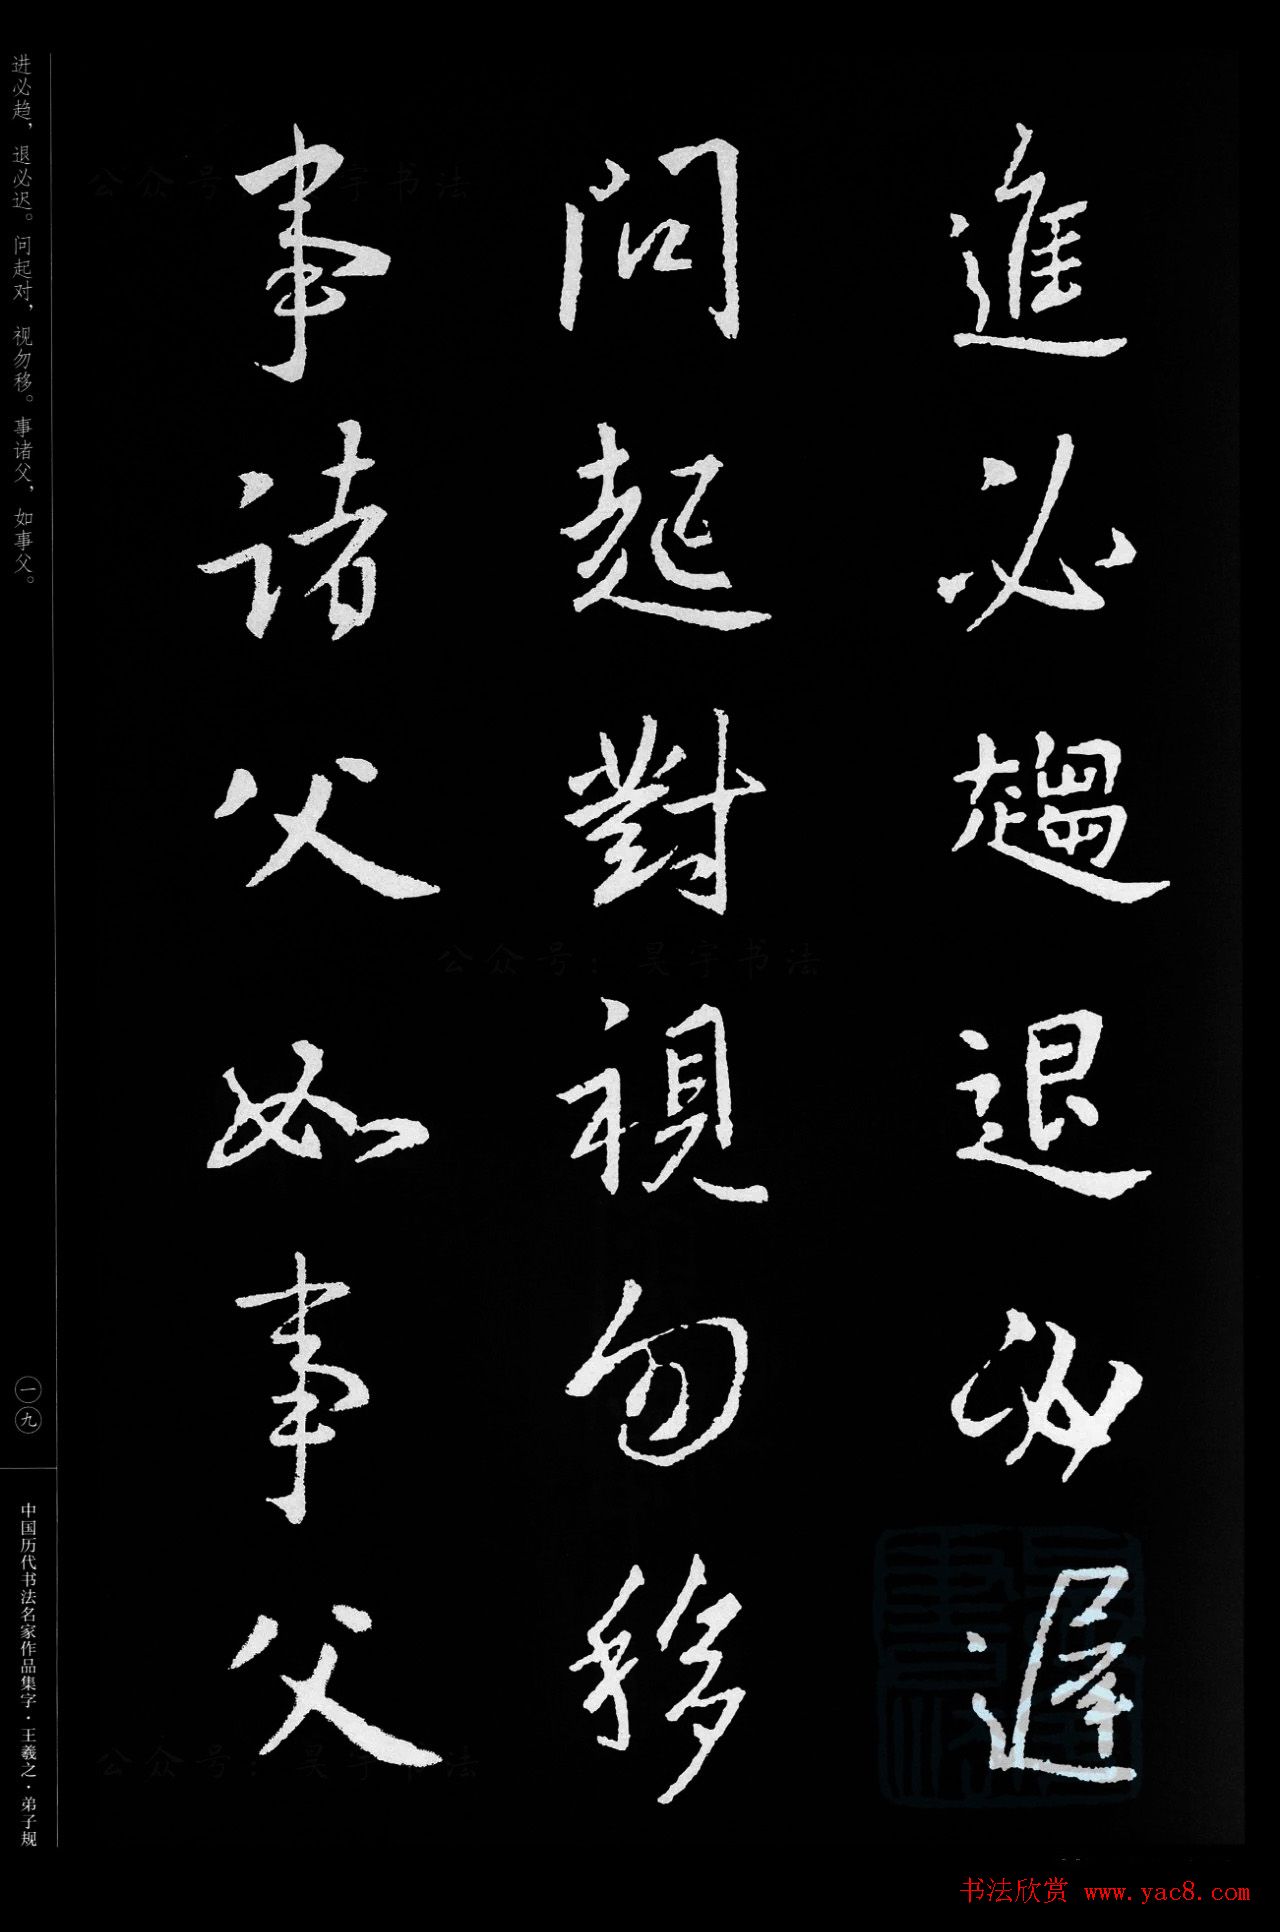 進必趨退必遲
問起對視勿移
事諸父如事父
进必趋，退必迟。问起对，视勿移。事诸父，如事父。
一九
中国历代书法名家作品集字·王羲之·弟子规
公众号：昊宇书法
公众号：昊宇书法
公众号：昊宇书法
书法欣赏 www.yac8.com